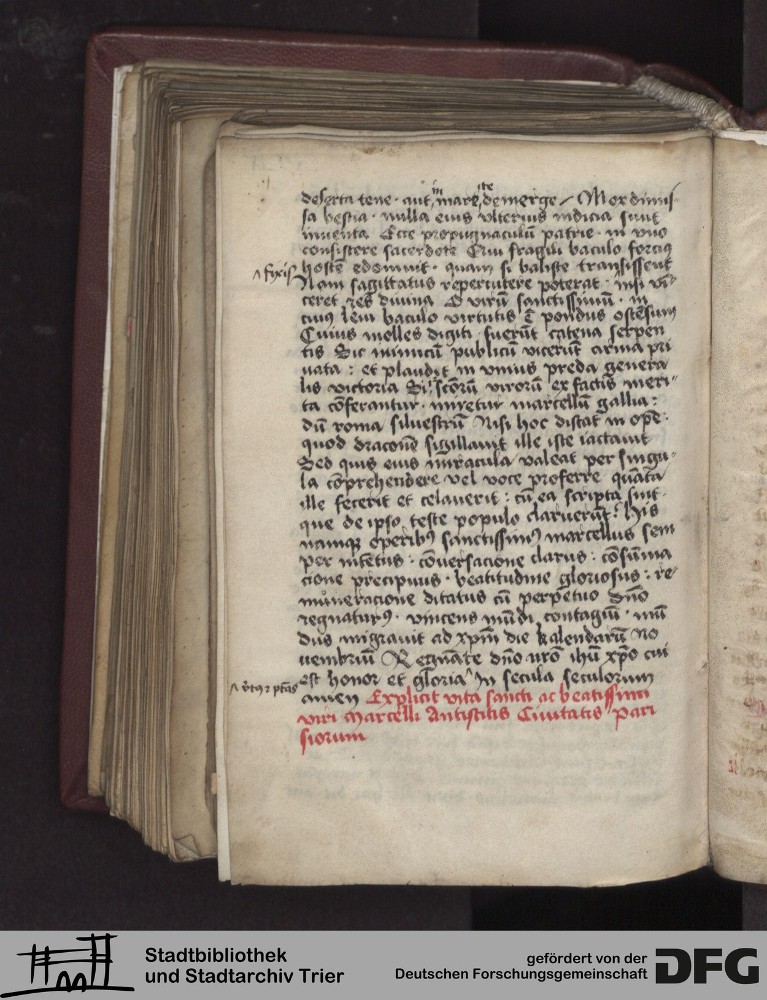 deserta tene · aut in mare te demerge / Mox dimis-
sa bestia · nulla eius vlterius indicia sunt
inuenta Ecce propugnaculū patrie · in vno
consistere sacerdote Qui fragili baculo forcius
hostē edomuit · quam si baliste transissent
^ fixis
Nam sagittatus repercutere poterat · nisi vī-
ceret res diuina O virū sanctissimū · in
cuius leui baculo virtutis ē pondus ostēsum
Cuius molles digiti · fuerūt catena serpen
tis Sic inimicū publicū vicerūt arma pri
uata : et plaudit in vnius preda genera
lis victoria Si scōrum virorū ex factis meri-
ta cōferantur · miretur marcellū gallia :
dū roma siluestrū Nisi hoc distat in ope ·
quod draconē sigillauit ille iste iactauit
Sed quis eius miracula valeat per singu-
la cōprehendere vel voce proferre quāta
ille fecerit et celauerit : cū ea scripta sint ·
que de ipso teste populo claruerūt : His
namqꝫ operibꝰ sanctissimꝰ marcellus sem
per intētus · cōuersacione clarus : cōsūma
cione precipuus · beatitudine gloriosus : re-
muneracione ditatus cū perpetuo dn̄o
regnaturꝰ · vincens mūdi contagiū · mū
dus migrauit ad xpm̄ die kalendarū no
uembriū Regnāte dn̄o nr̄o ihū xp̄o cui
est honor et gloria ^ in secula seculorum
amen Explicit vita sancti ac beatissimi
viri Marcelli Antistitis Ciuitatis Pari
siorum
Stadtbibliothek
und Stadtarchiv Trier
gefördert von der
Deutschen Forschungsgemeinschaft
DFG